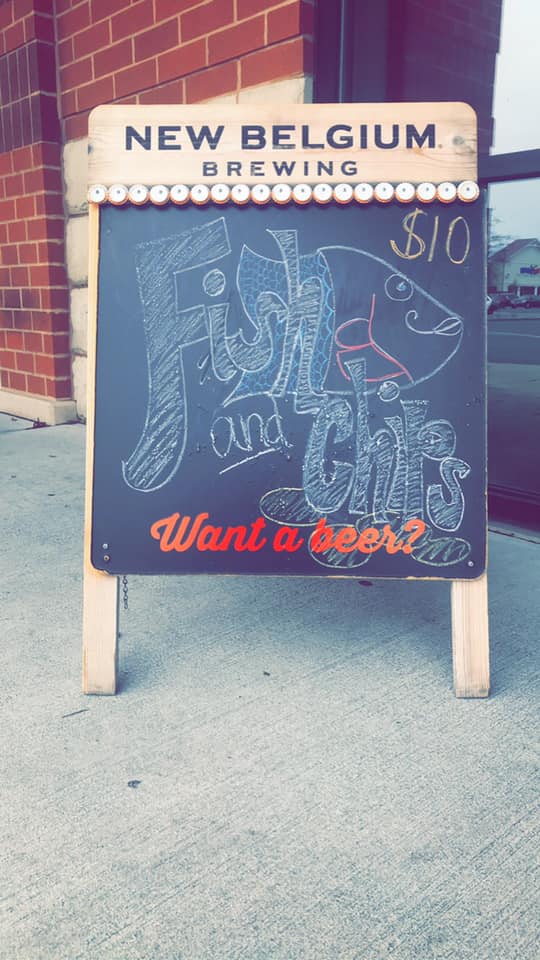 NEW BELGIUM
BREWING
$10
Fish
and
Chips
Want a beer?